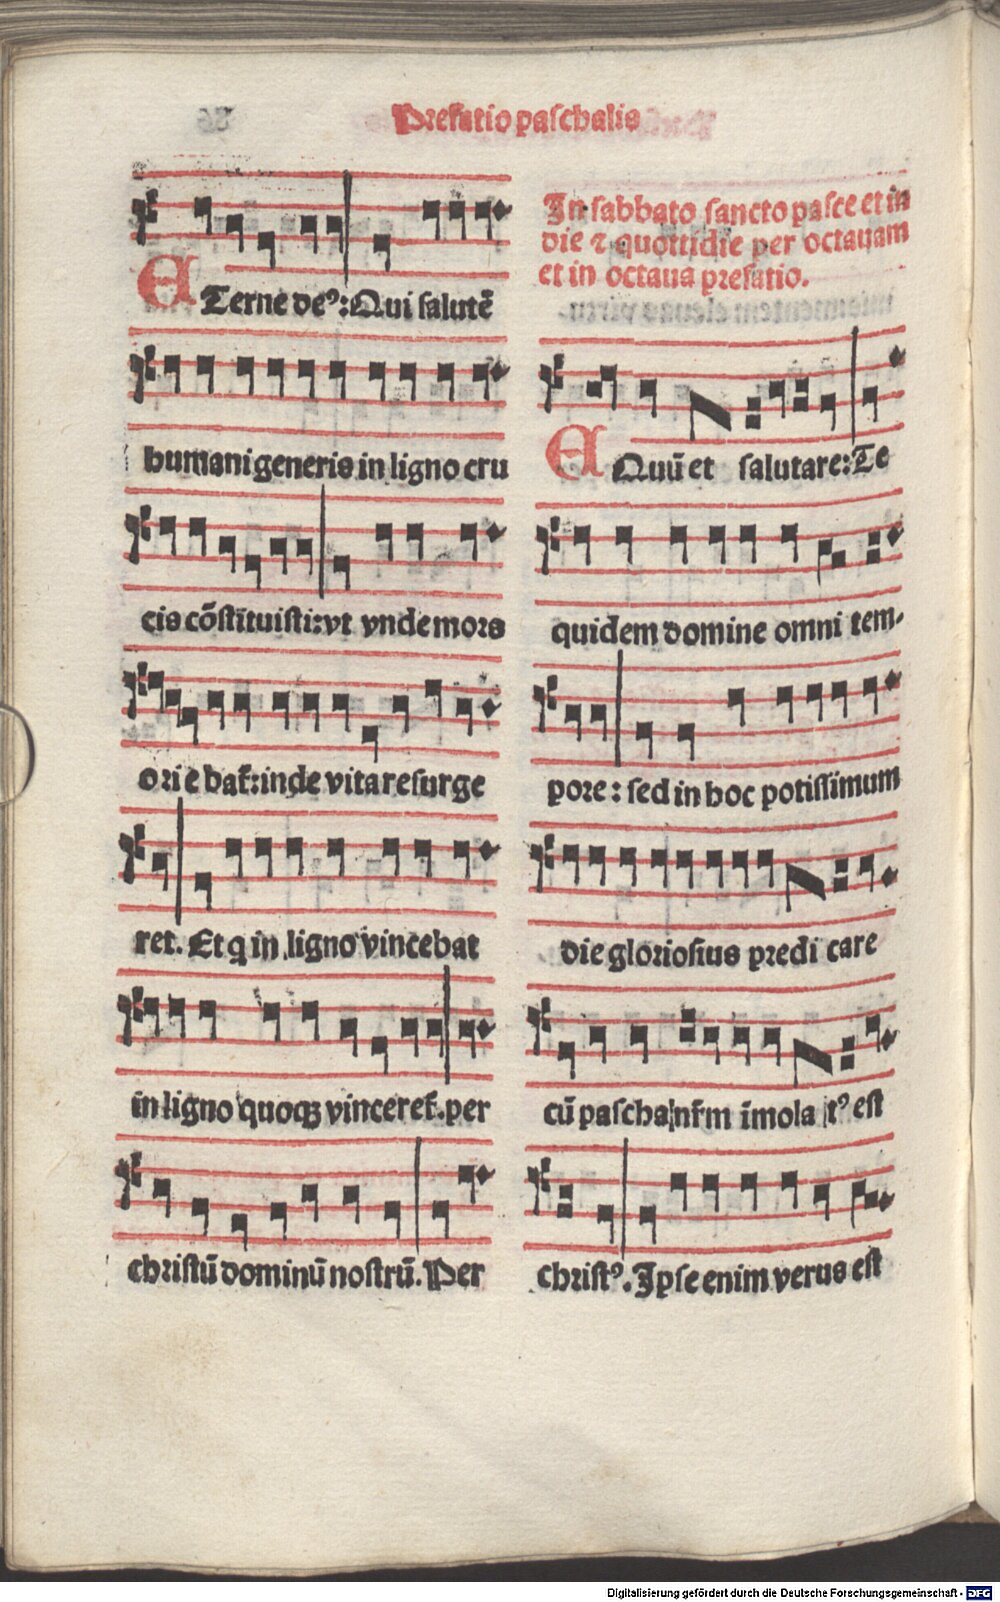 Prefatio paschalis
ETerne deꝰ: Qui salutē
humani generis in ligno cru
cis cōstituisti: vt vnde mors
oriebat̄: inde vita resurge
ret. Et q in ligno vincebat
in ligno quoqꝫ vinceret̄. per
christū dominū nostrū. Per
In sabbato sancto pasce et in
die ⁊ quottidie per octauam
et in octaua prefatio.
EQuū et salutare: Te
quidem domine omni tem-
pore: sed in hoc potissimum
die gloriosius predicare
cū pascha nr̄m īmola tꝰ est
christꝰ. Ipse enim verus est
Digitalisierung gefördert durch die Deutsche Forschungsgemeinschaft - DFG